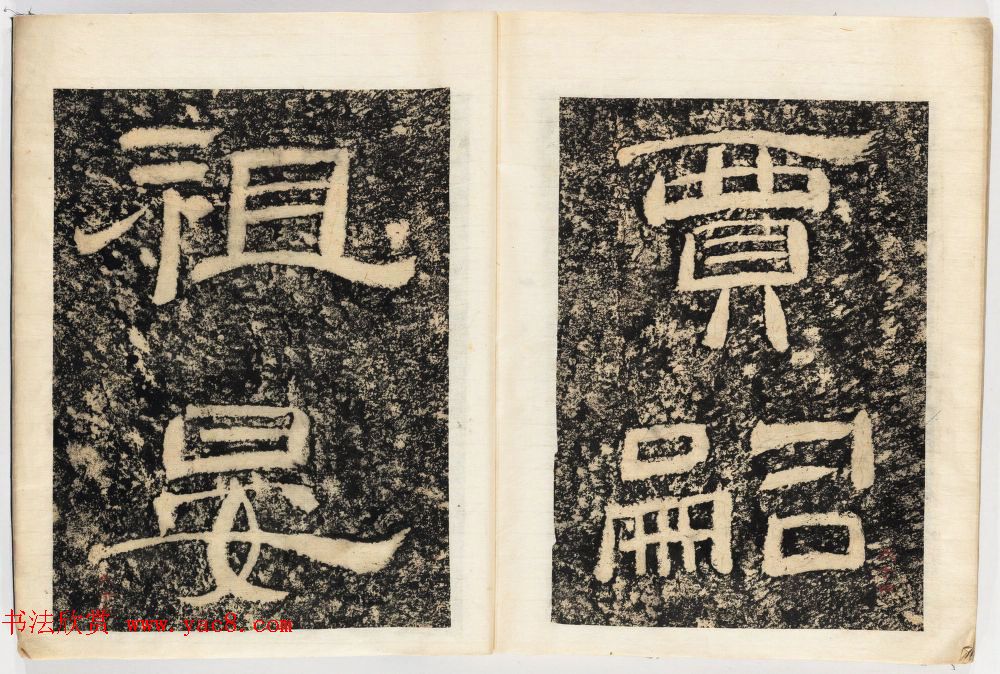 賈
嗣
祖
晏
书法欣赏 www.yac8.com